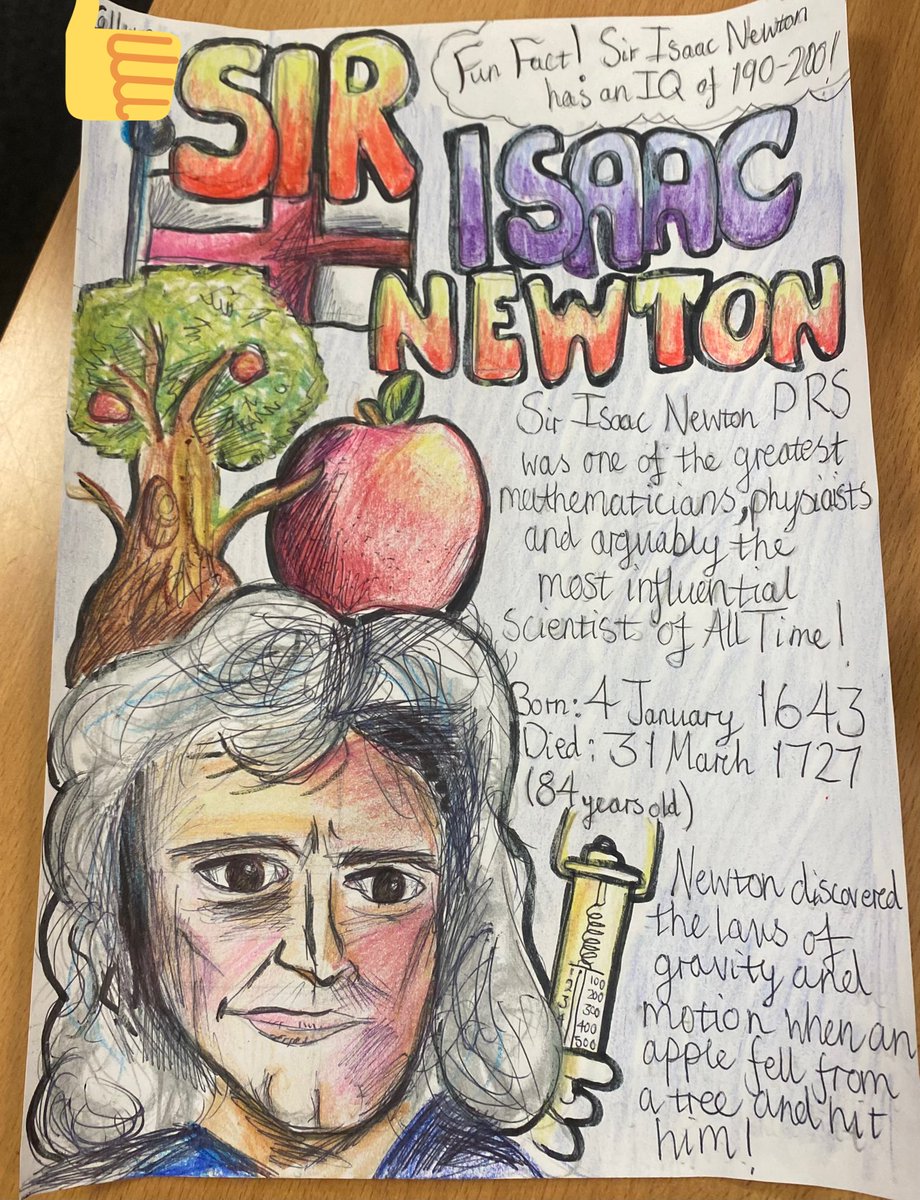 Fun Fact! Sir Isaac Newton
has an IQ of 190-200!
SIR
ISAAC
NEWTON
Sir Isaac Newton PRS
was one of the greatest
mathematicians, physicists
and arguably the
most influential
Scientists of All Time!
Born: 4 January 1643
Died: 31 March 1727
(84 years old)
100
200
300
400
500
Newton discovered
the laws of
gravity and
motion when an
apple fell from
a tree and hit
him!